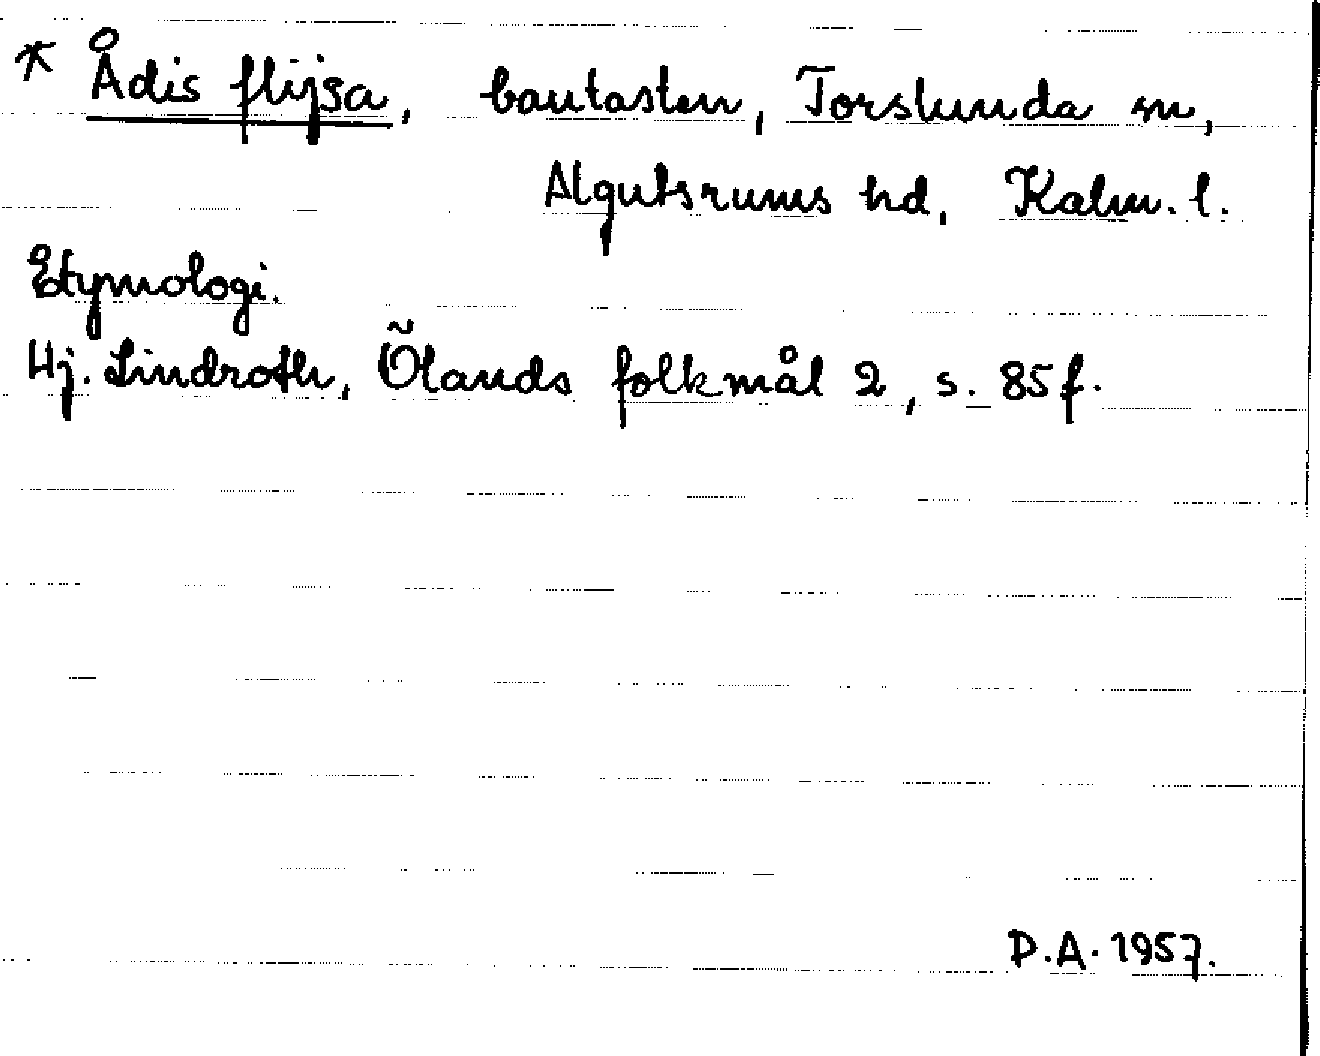 * Ådis flijsa, bautasten, Torslunda sn,
Algutsrums hd, Kalm. l.
Etymologi.
Hj. Lindroth, Õlands folkmål 2, s. 85 f.
D.A. 1957.